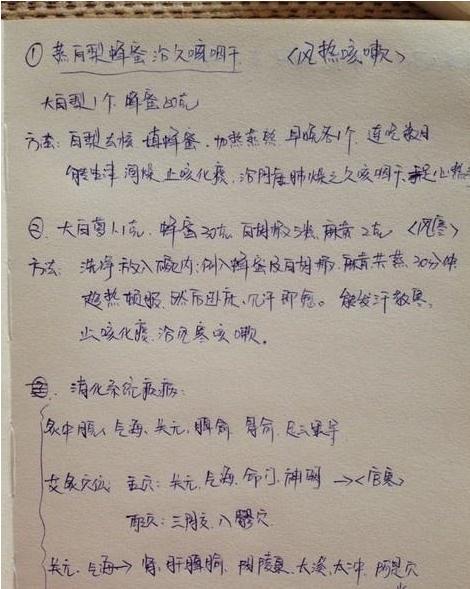 ① 蒸白梨蜂蜜治久咳咽干 〈风热咳嗽〉
大白梨1个 蜂蜜50克
方法: 白梨去核 填蜂蜜. 加热蒸熟 早晚各1个 连吃数日
能生津润燥 止咳化痰. 治阴虚肺燥之久咳咽干. 手足心热
②. 大白萝卜1克. 蜂蜜30克 白胡椒5粒 麻黄2克 〈风寒〉
方法: 洗净 放入碗内; 倒入蜂蜜及白胡椒, 麻黄共蒸30分钟
趁热顿服. 然后卧床, 见汗即愈。能发汗散寒,
止咳化痰. 治风寒咳嗽.
消化系统疾病:
灸中脘、气海、关元, 脾俞 胃俞 足三里等
艾灸穴位 主穴: 关元. 气海. 命门. 神阙 →〈宫寒〉
配穴: 三阴交. 八髎穴
关元. 气海→ 肾, 肝脾俞. 阴陵泉. 太溪. 太冲. 阿是穴